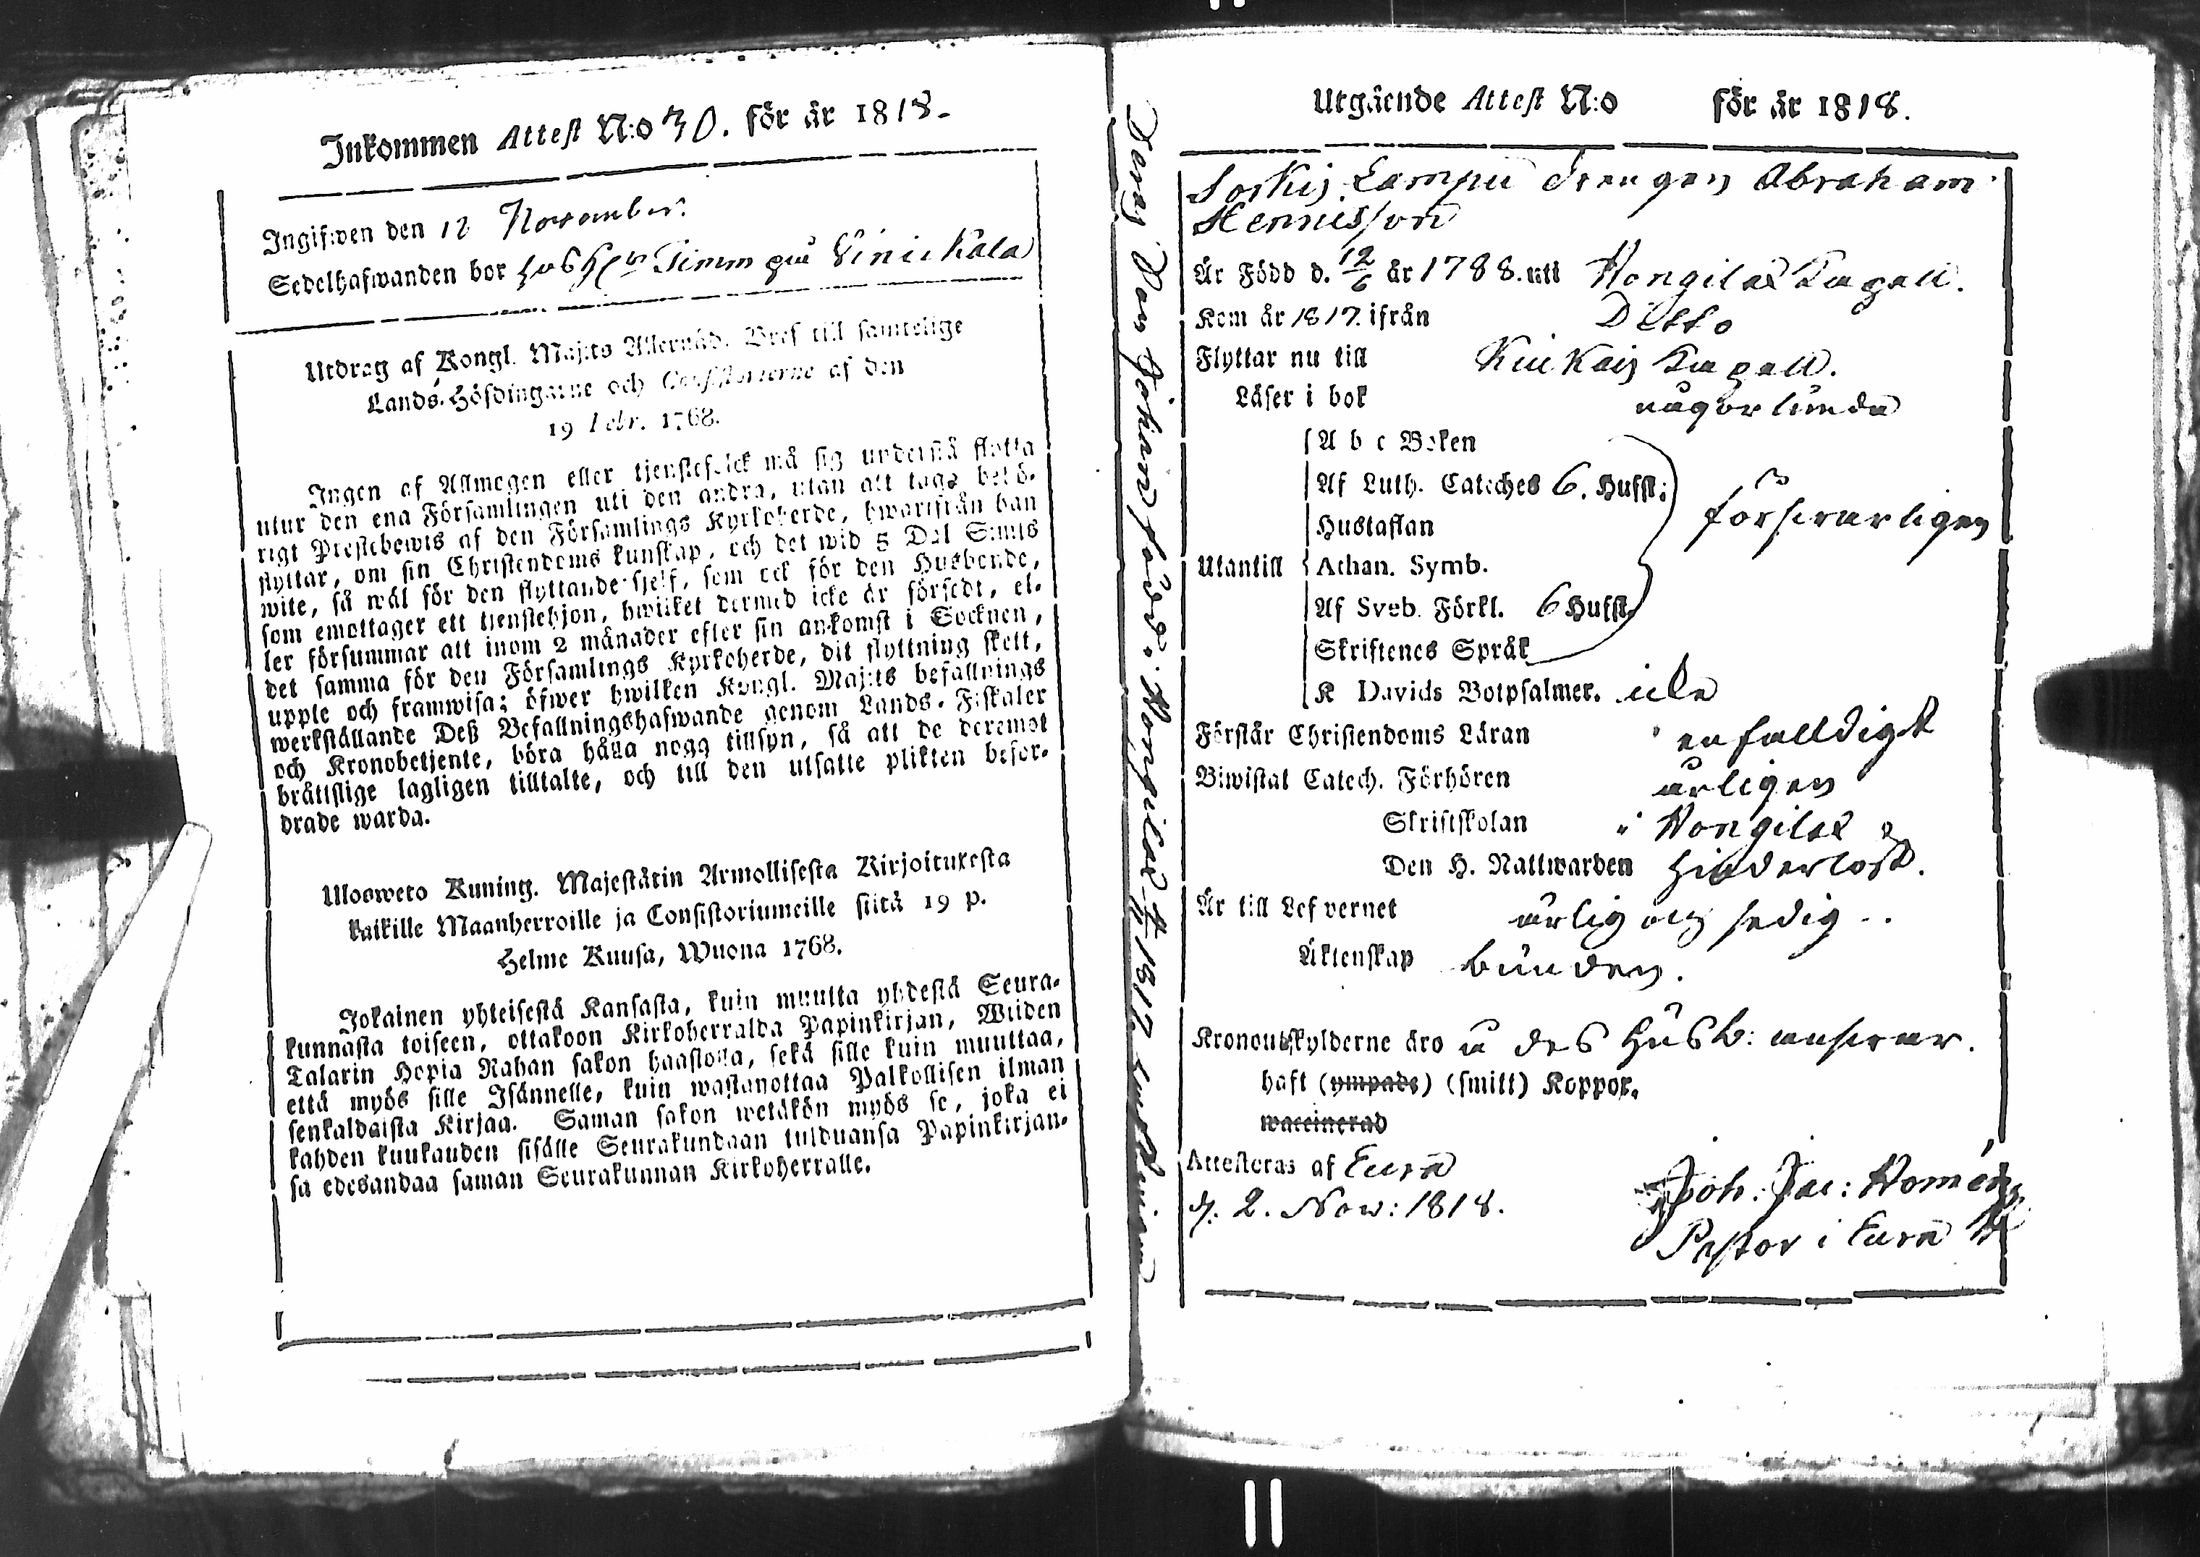 Inkommen Attest N:o 30. för år 1818.
Ingifwen den 12 November.
Sedelhafwanden bor hos H:r Timm på Vinikala
Utdrag af Kongl. Maj:ts Allernåd. Bref till samtelige
Lands-Höfdingarne och Consistorierne af den
19 Febr. 1768.
Ingen af Allmogen eller tjenstefolck må sig understå flytta
utur den ena Församlingen uti den andra, utan att taga behö-
rigt Prestebewis af den Församlings Kyrkoherde, hwarifrån han
flyttar, om sin Christendoms kunskap, och det wid 5 Dal. S:mts
wite, så wäl för den flyttande sjelf, som ock för den Husbonde,
som emottager ett tjenstehjon, hwilket dermed icke är försedt, el-
ler försummar att inom 2 månader efter sin ankomst i Socknen,
det samma för den Församlings Kyrkoherde, dit flyttning skett,
upple och framwisa; öfwer hwilken Kongl. Maj:ts befallnings
werkställande Deß Befallningshafwande genom Lands-Fiskaler
och Kronobetjente, böra hålla nogg tillsyn, så att de deremot
bråttslige lagligen tilltalte, och till den utsatte plikten befor-
drade warda.
Ulosweto Kuning. Majestätin Armollisesta Kirjoituxesta
kaikille Maanherroille ja Consistoriumeille siitä 19 p.
Helme Kuusa, Wuona 1768.
Jokainen yhteisestä Kansasta, kuin muutta yhdestä Seura-
kunnasta toiseen, ottakoon Kirkoherralda Papinkirjan, Wiiden
Talarin Hopia Rahan sakon haastolla, sekä sille kuin muuttaa,
että myös sille Isännelle, kuin wastanottaa Palkollisen ilman
senkaldaista Kirjaa. Saman sakon wetäkön myös se, joka ei
kahden kuukauden sisälle Seurakundaan tulduansa Papinkirjan-
sa edesandaa saman Seurakunnan Kirkoherralle.
Deras Son Johan född i Hongilax
Utgående Attest N:o för år 1818.
Sorkis Lampu Drengen Abraham
Hennisson
Är Född d. 12/6 år 1788. uti Hongilax Capell.
Kom år 1817. ifrån Ditto
Flyttar nu till Kiukais Capell.
Läser i bok någorlunda
A b c Boken
Af Luth. Cateches 6. Hufst:
Hustaflan
försvarligen
Utantill Athan. Symb.
Af Sveb. Förkl. 6 Hufst.
Skriftenes Språk
K Davids Botpsalmer. icke
Förstår Christendoms Läran enfalldigt
Biwistat Catech. Förhören årligen
Skriftskolan i Hongilax
Den H. Nattwarden hinderlöst.
Är till Lefvernet ärlig och sedig
Äktenskap bunden.
Kronoutskylderne äro å des Husb: ansvar.
haft (ympade) (smitt) Koppor.
waccinerad
Attesteras af Eura
d. 2. Nov: 1818.
Joh: Jac: Homén
Pastor i Eura